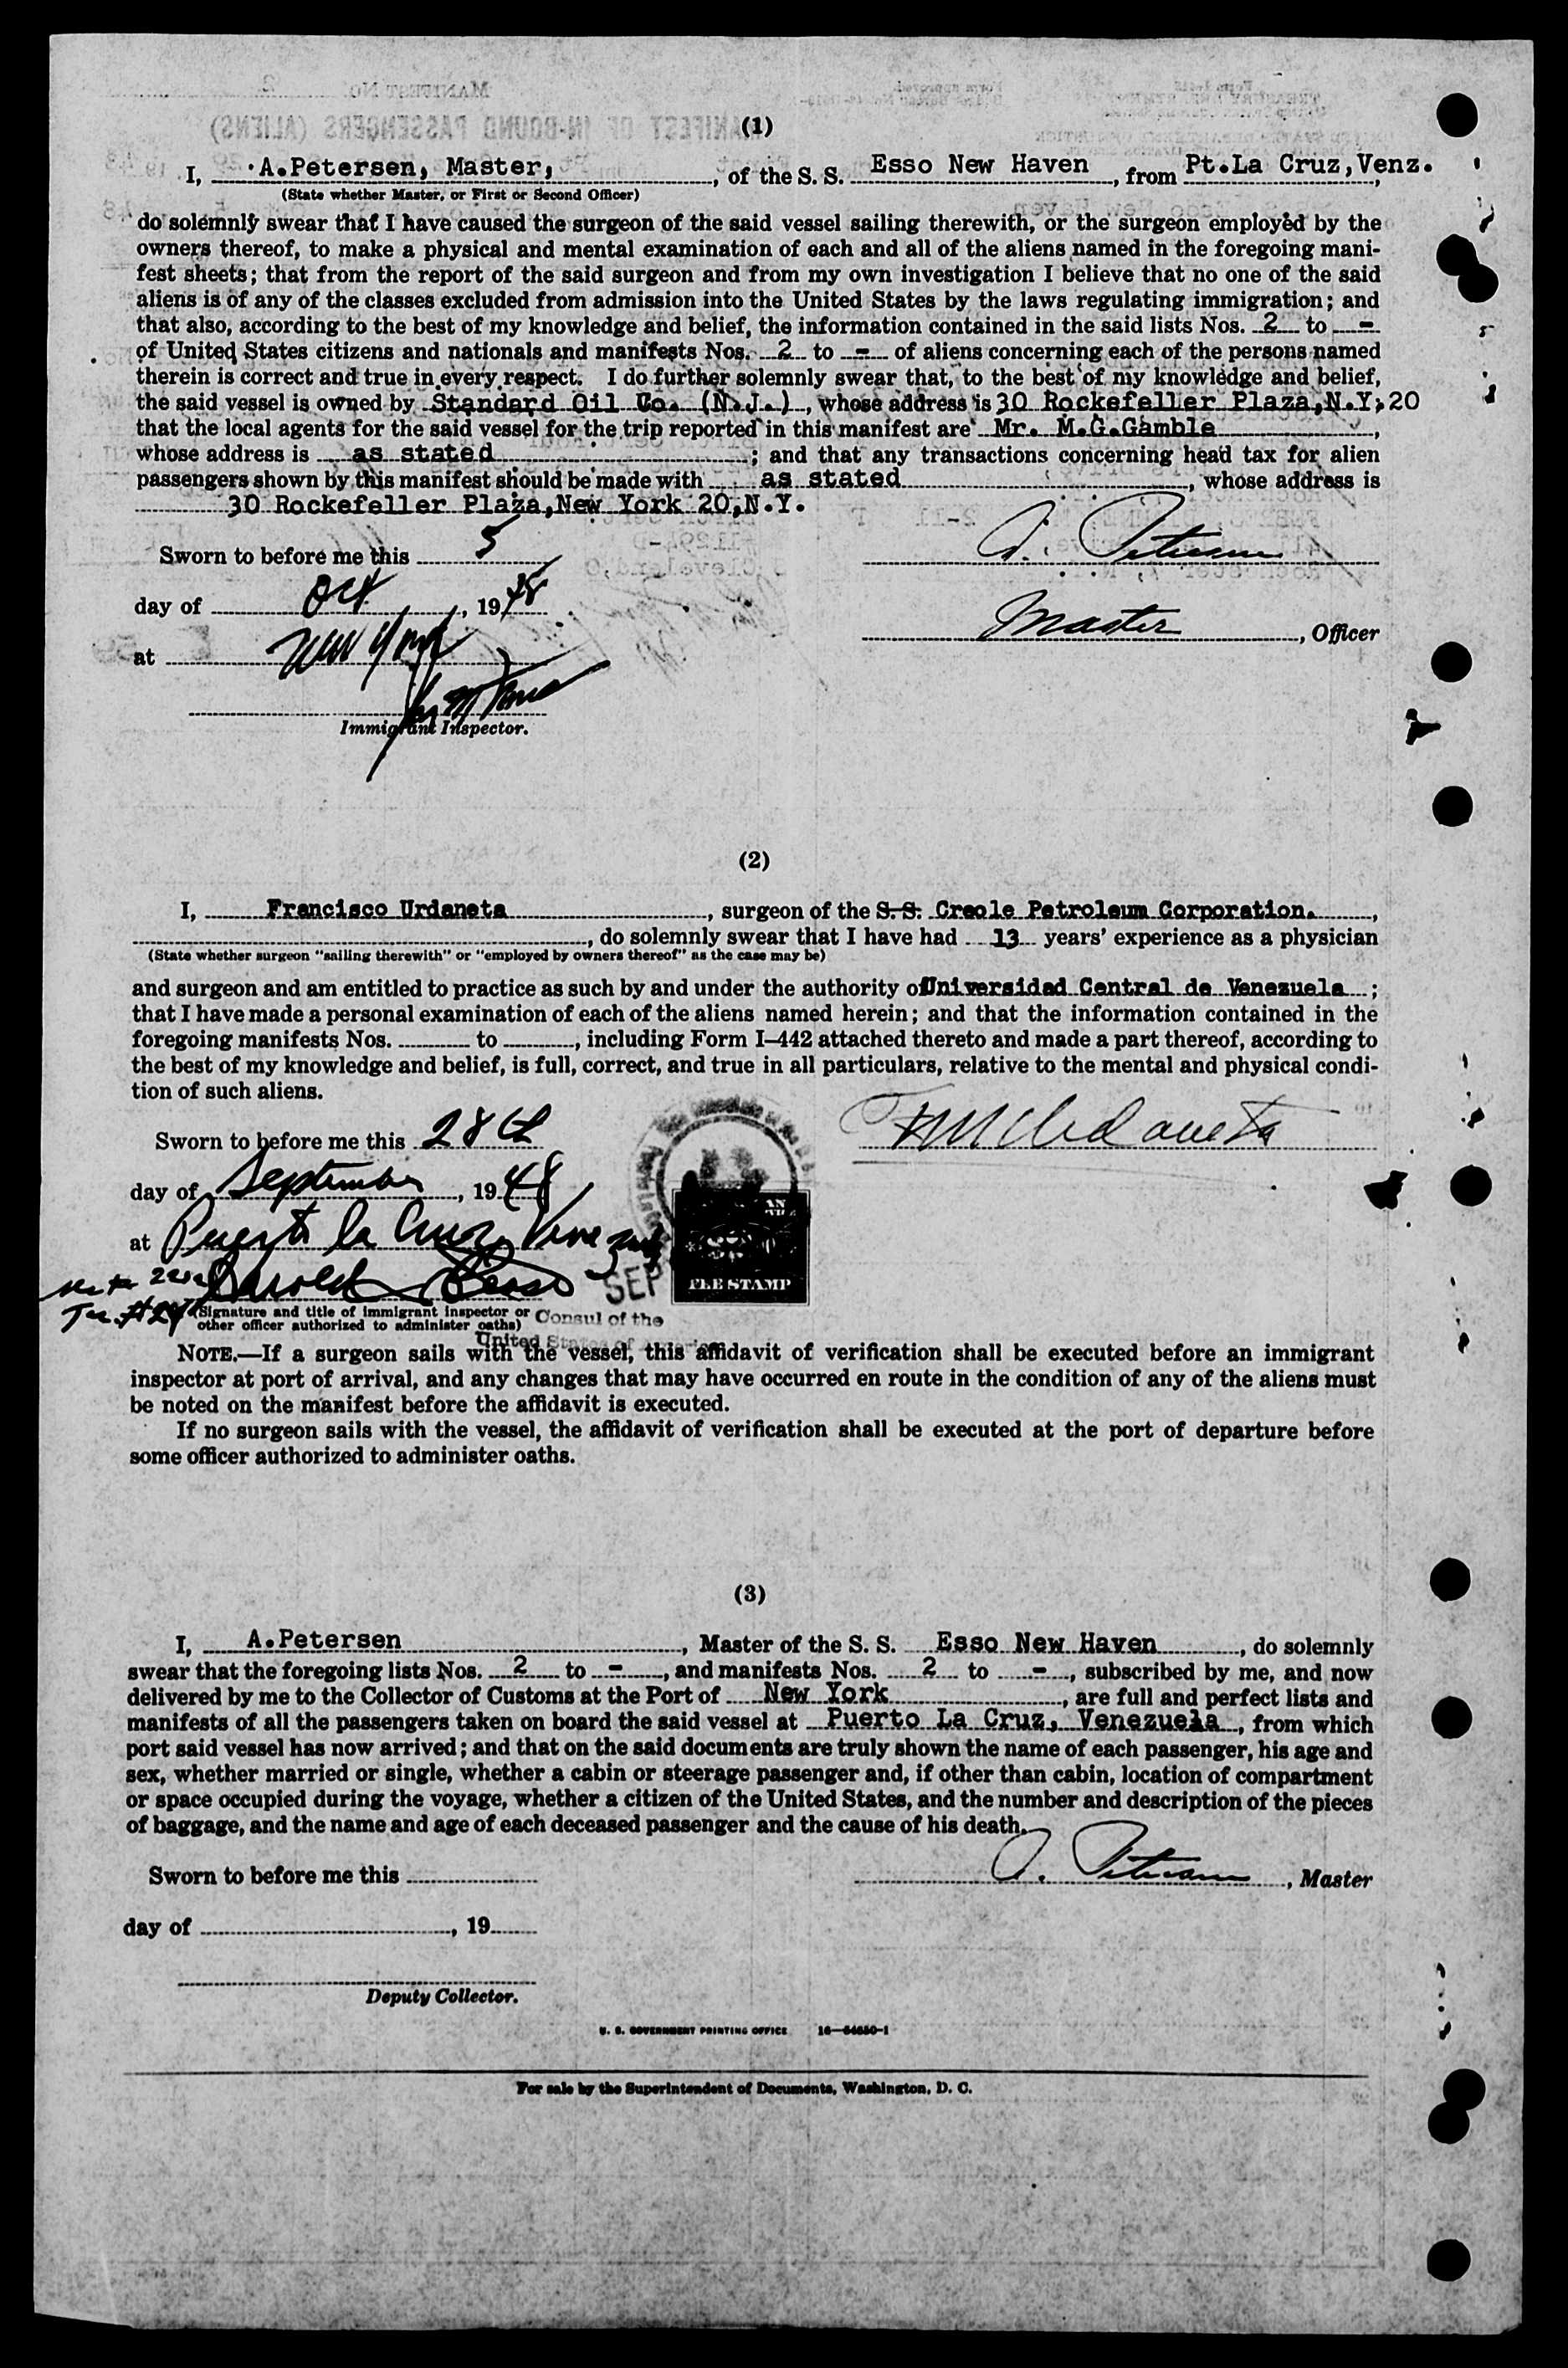 (1)
I, A.Petersen, Master, , of the S. S. Esso New Haven , from Pt.La Cruz,Venz. ,
(State whether Master, or First or Second Officer)
do solemnly swear that I have caused the surgeon of the said vessel sailing therewith, or the surgeon employed by the
owners thereof, to make a physical and mental examination of each and all of the aliens named in the foregoing mani-
fest sheets; that from the report of the said surgeon and from my own investigation I believe that no one of the said
aliens is of any of the classes excluded from admission into the United States by the laws regulating immigration; and
that also, according to the best of my knowledge and belief, the information contained in the said lists Nos. 2 to -
of United States citizens and nationals and manifests Nos. 2 to - of aliens concerning each of the persons named
therein is correct and true in every respect. I do further solemnly swear that, to the best of my knowledge and belief,
the said vessel is owned by Standard Oil Co. (N.J.) , whose address is 30 Rockefeller Plaza,N.Y; 20
that the local agents for the said vessel for the trip reported in this manifest are Mr. M.G.Gamble ,
whose address is as stated ; and that any transactions concerning head tax for alien
passengers shown by this manifest should be made with as stated , whose address is
30 Rockefeller Plaza,New York 20,N.Y.
Sworn to before me this 5
A. Petersen
day of Oct , 1948
Master , Officer
at New York
Immigrant Inspector.
(2)
I, Francisco Urdaneta , surgeon of the S. S. Creole Petroleum Corporation. ,
, do solemnly swear that I have had 13 years' experience as a physician
(State whether surgeon "sailing therewith" or "employed by owners thereof" as the case may be)
and surgeon and am entitled to practice as such by and under the authority of Universidad Central de Venezuela ;
that I have made a personal examination of each of the aliens named herein; and that the information contained in the
foregoing manifests Nos. to , including Form I-442 attached thereto and made a part thereof, according to
the best of my knowledge and belief, is full, correct, and true in all particulars, relative to the mental and physical condi-
tion of such aliens.
Sworn to before me this 28th
day of September , 1948
at Puerto la Cruz, Venezuela
SEP
FEE STAMP
(Signature and title of immigrant inspector or
other officer authorized to administer oaths)
Consul of the
United States of America
NOTE.—If a surgeon sails with the vessel, this affidavit of verification shall be executed before an immigrant
inspector at port of arrival, and any changes that may have occurred en route in the condition of any of the aliens must
be noted on the manifest before the affidavit is executed.
If no surgeon sails with the vessel, the affidavit of verification shall be executed at the port of departure before
some officer authorized to administer oaths.
(3)
I, A.Petersen , Master of the S. S. Esso New Haven , do solemnly
swear that the foregoing lists Nos. 2 to - , and manifests Nos. 2 to - , subscribed by me, and now
delivered by me to the Collector of Customs at the Port of New York , are full and perfect lists and
manifests of all the passengers taken on board the said vessel at Puerto La Cruz, Venezuela , from which
port said vessel has now arrived; and that on the said documents are truly shown the name of each passenger, his age and
sex, whether married or single, whether a cabin or steerage passenger and, if other than cabin, location of compartment
or space occupied during the voyage, whether a citizen of the United States, and the number and description of the pieces
of baggage, and the name and age of each deceased passenger and the cause of his death.
Sworn to before me this
A. Petersen , Master
day of , 19
Deputy Collector.
U. S. GOVERNMENT PRINTING OFFICE 16—54650-1
For sale by the Superintendent of Documents, Washington, D. C.